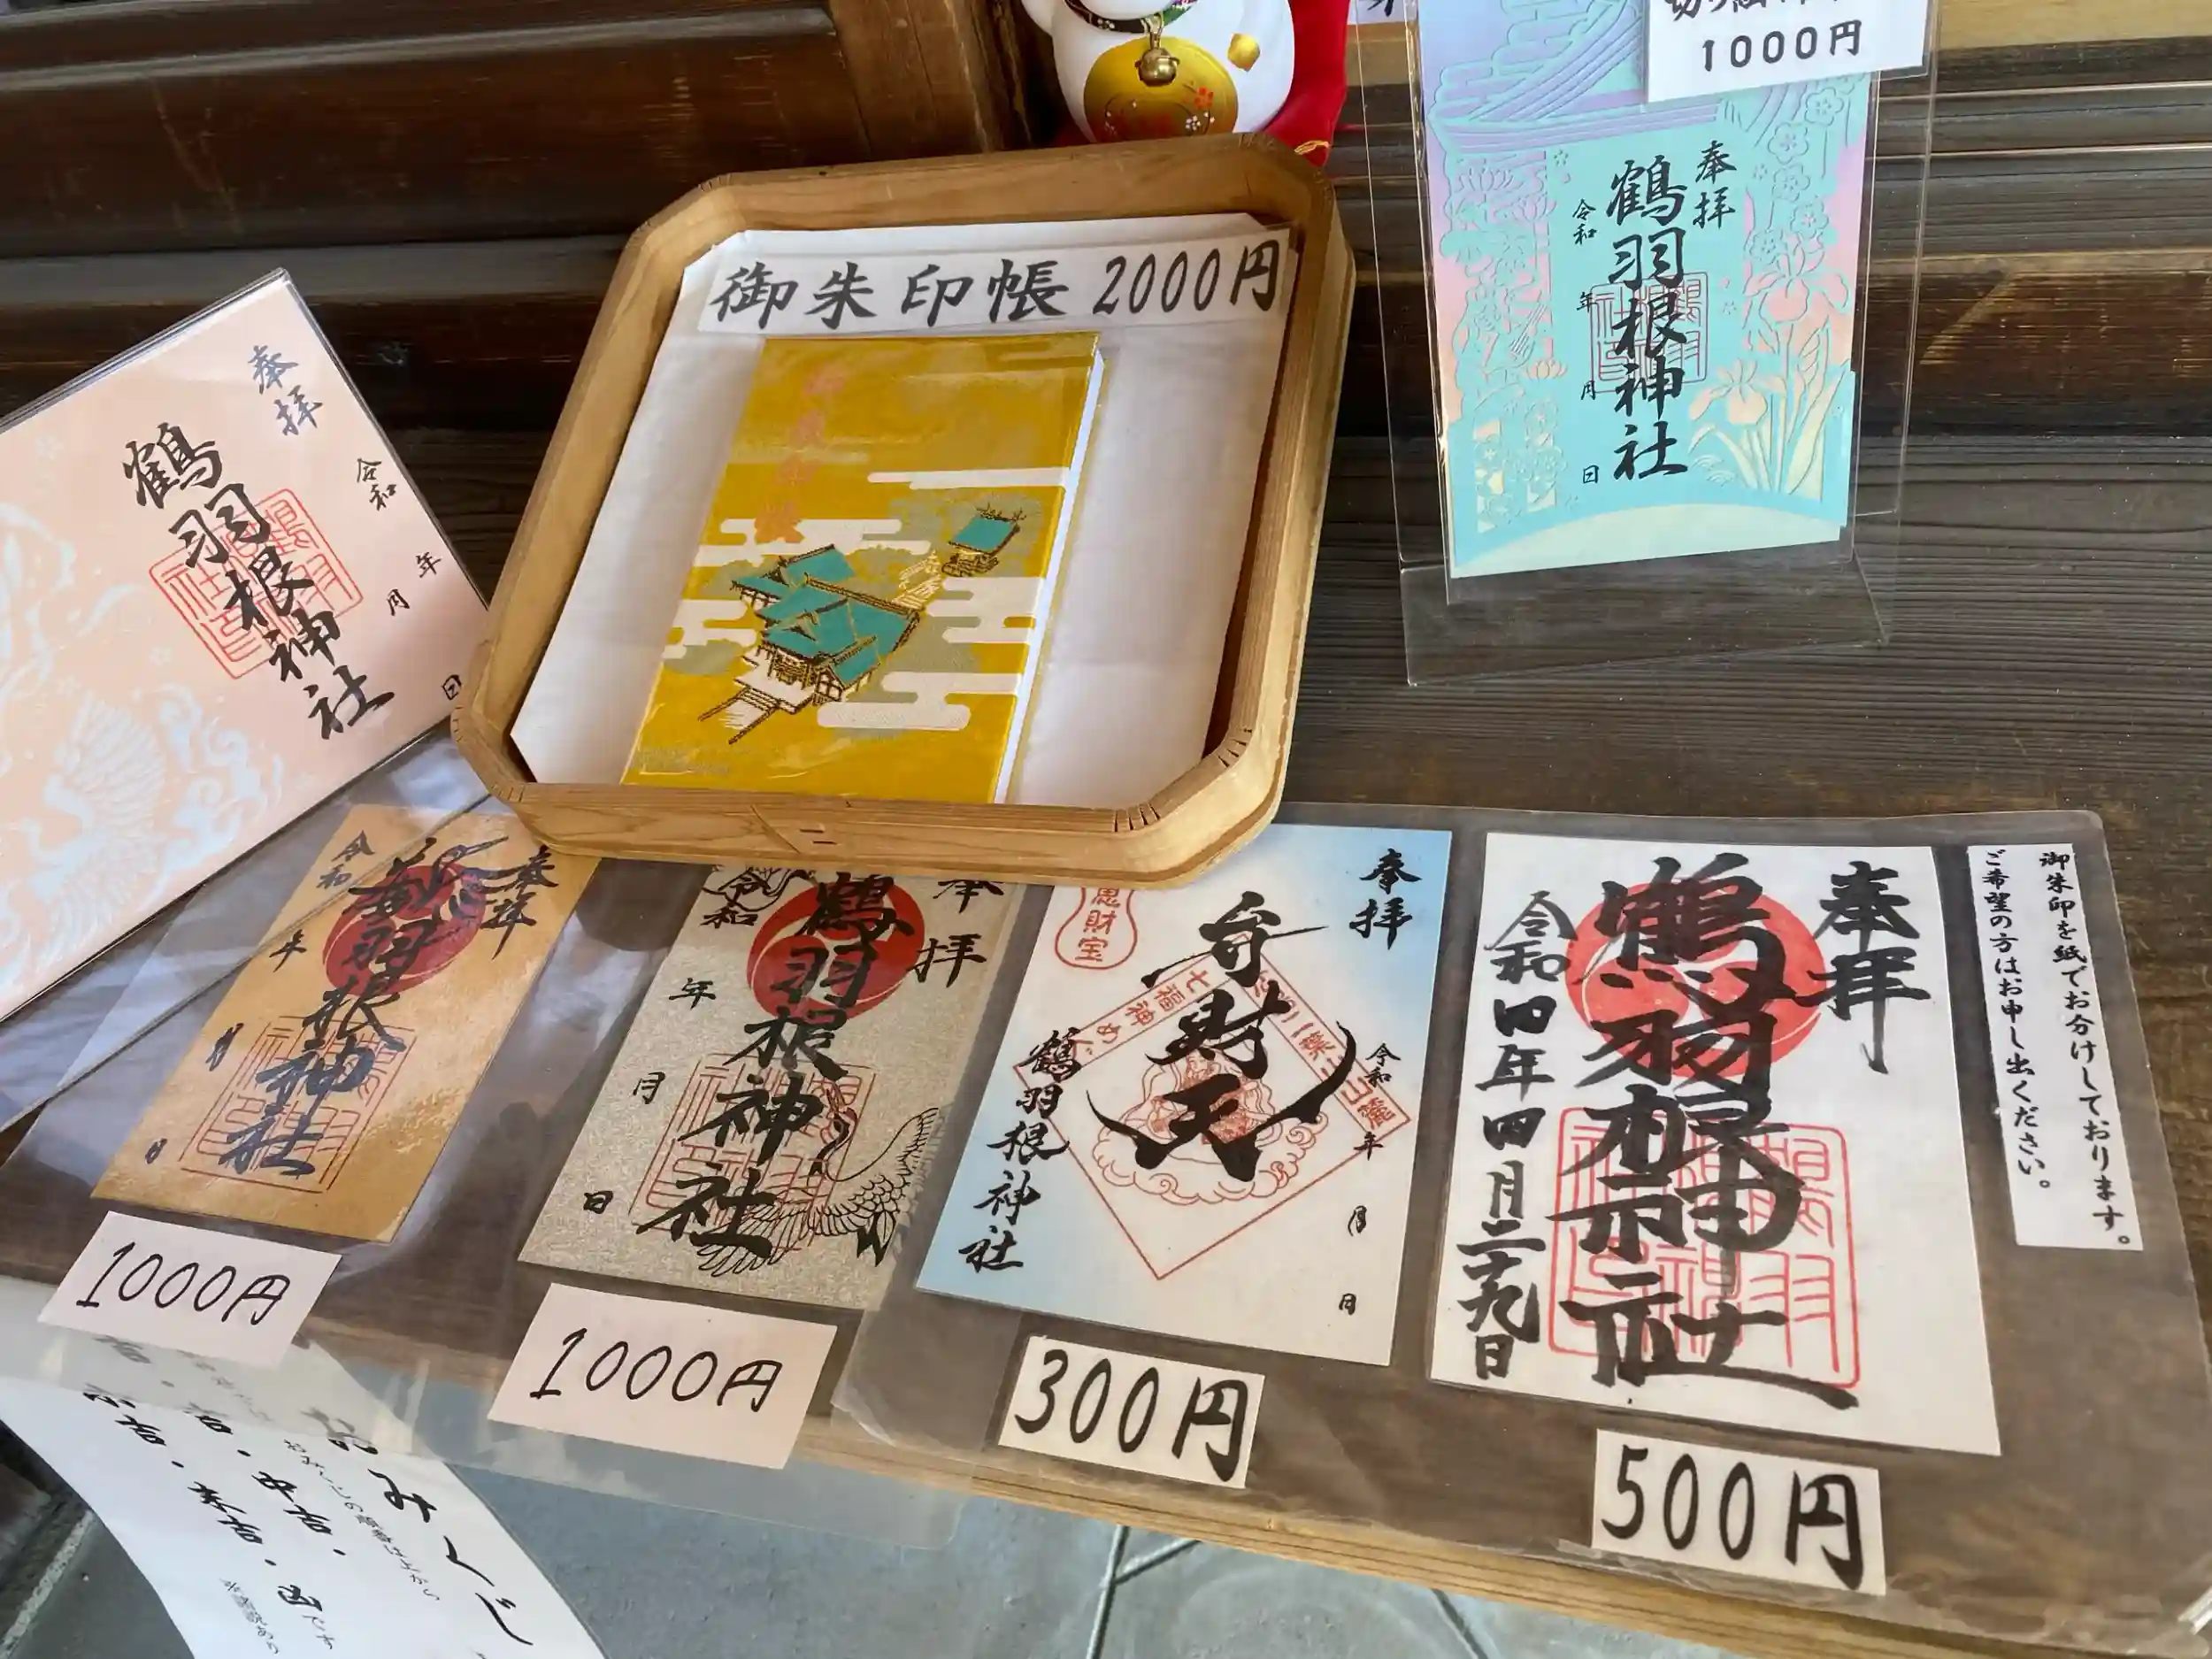 切り絵
1000円
奉拝
鶴羽根神社
令和
年
月
日
御朱印帳 2000円
御朱印帳
奉拝
鶴羽根神社
令和
年
月
日
奉拝
鶴羽根神社
令和
年
月
日
1000円
奉拝
鶴羽根神社
令和
年
月
日
1000円
奉拝
弁財天
財宝
七福神めぐ
令和
年
月
日
鶴羽根神社
300円
奉拝
鶴羽根神社
令和四年四月二十九日
500円
御朱印を紙でお分けしております。
ご希望の方はお申し出ください。
おみくじ
吉・中吉・
小吉・末吉・凶です